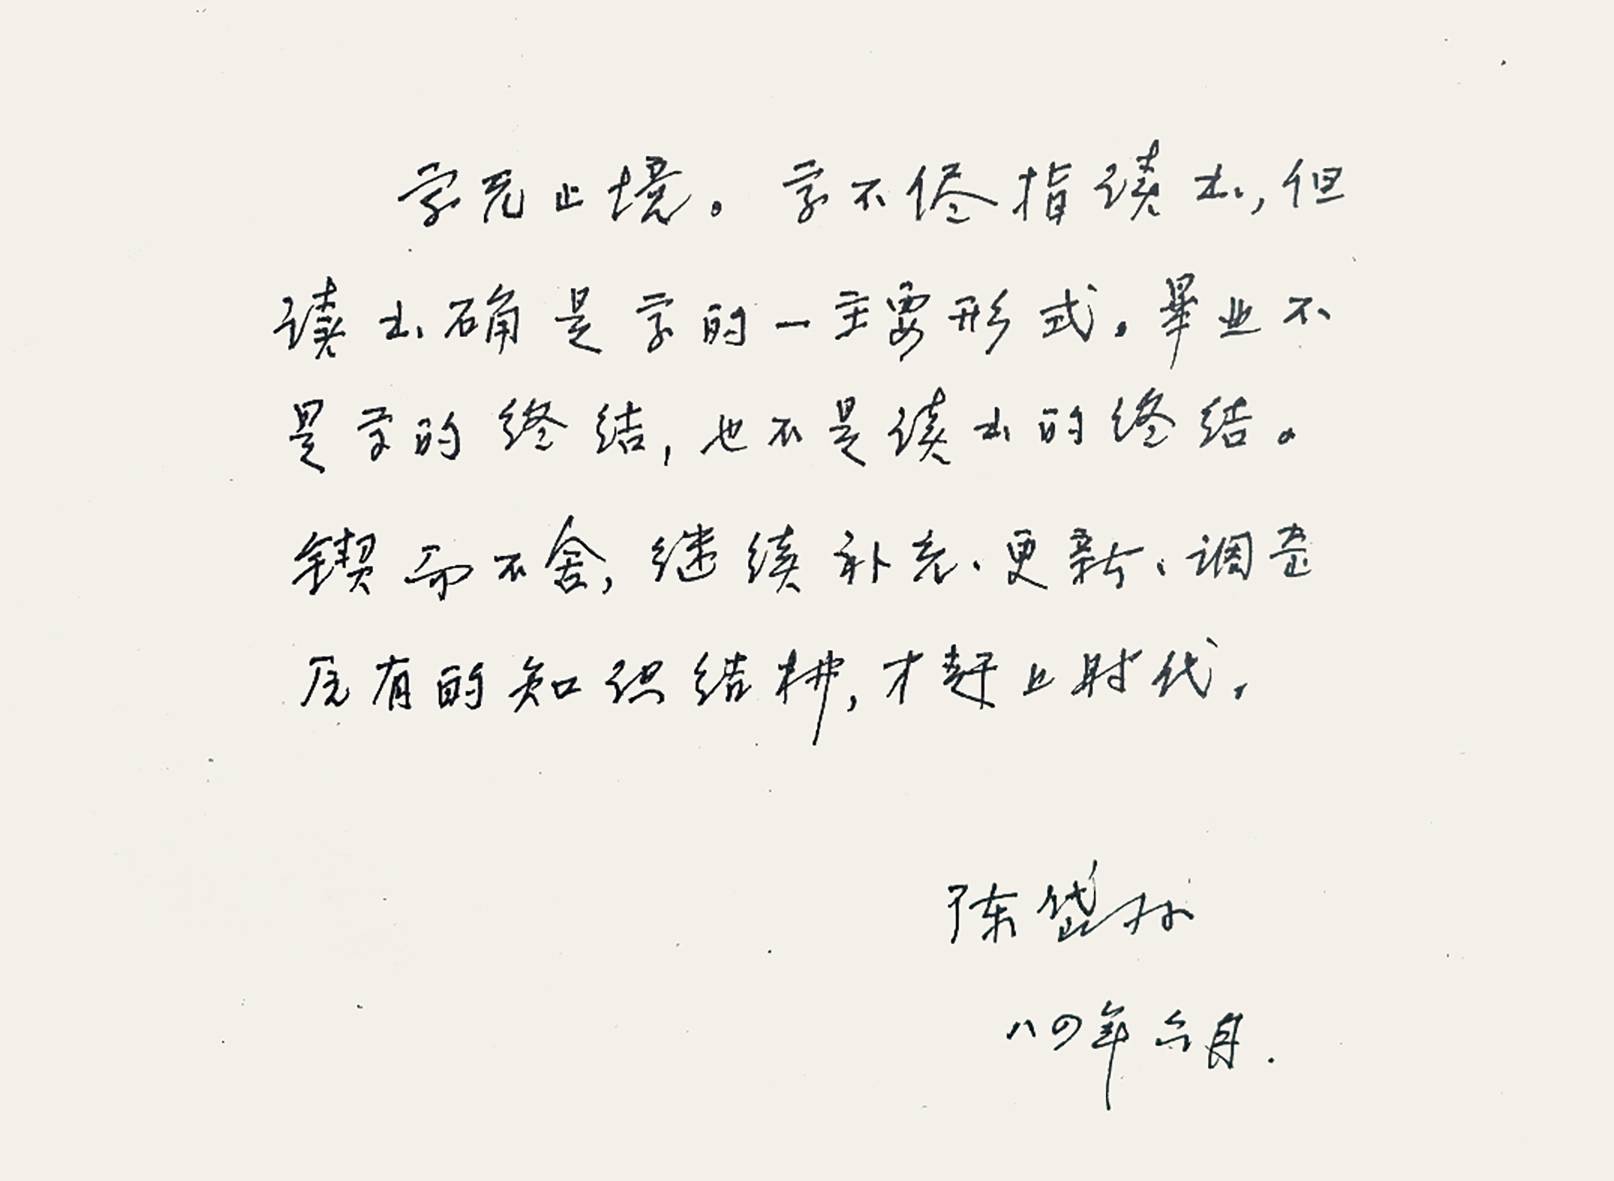 学无止境。学不侭指读书，但
读书确是学的一主要形式。畢业不
是学的终结，也不是读书的终结。
锲而不舍，继续补充、更新、调整
原有的知识结构，才赶上时代。
陈岱孙
八四年六月.